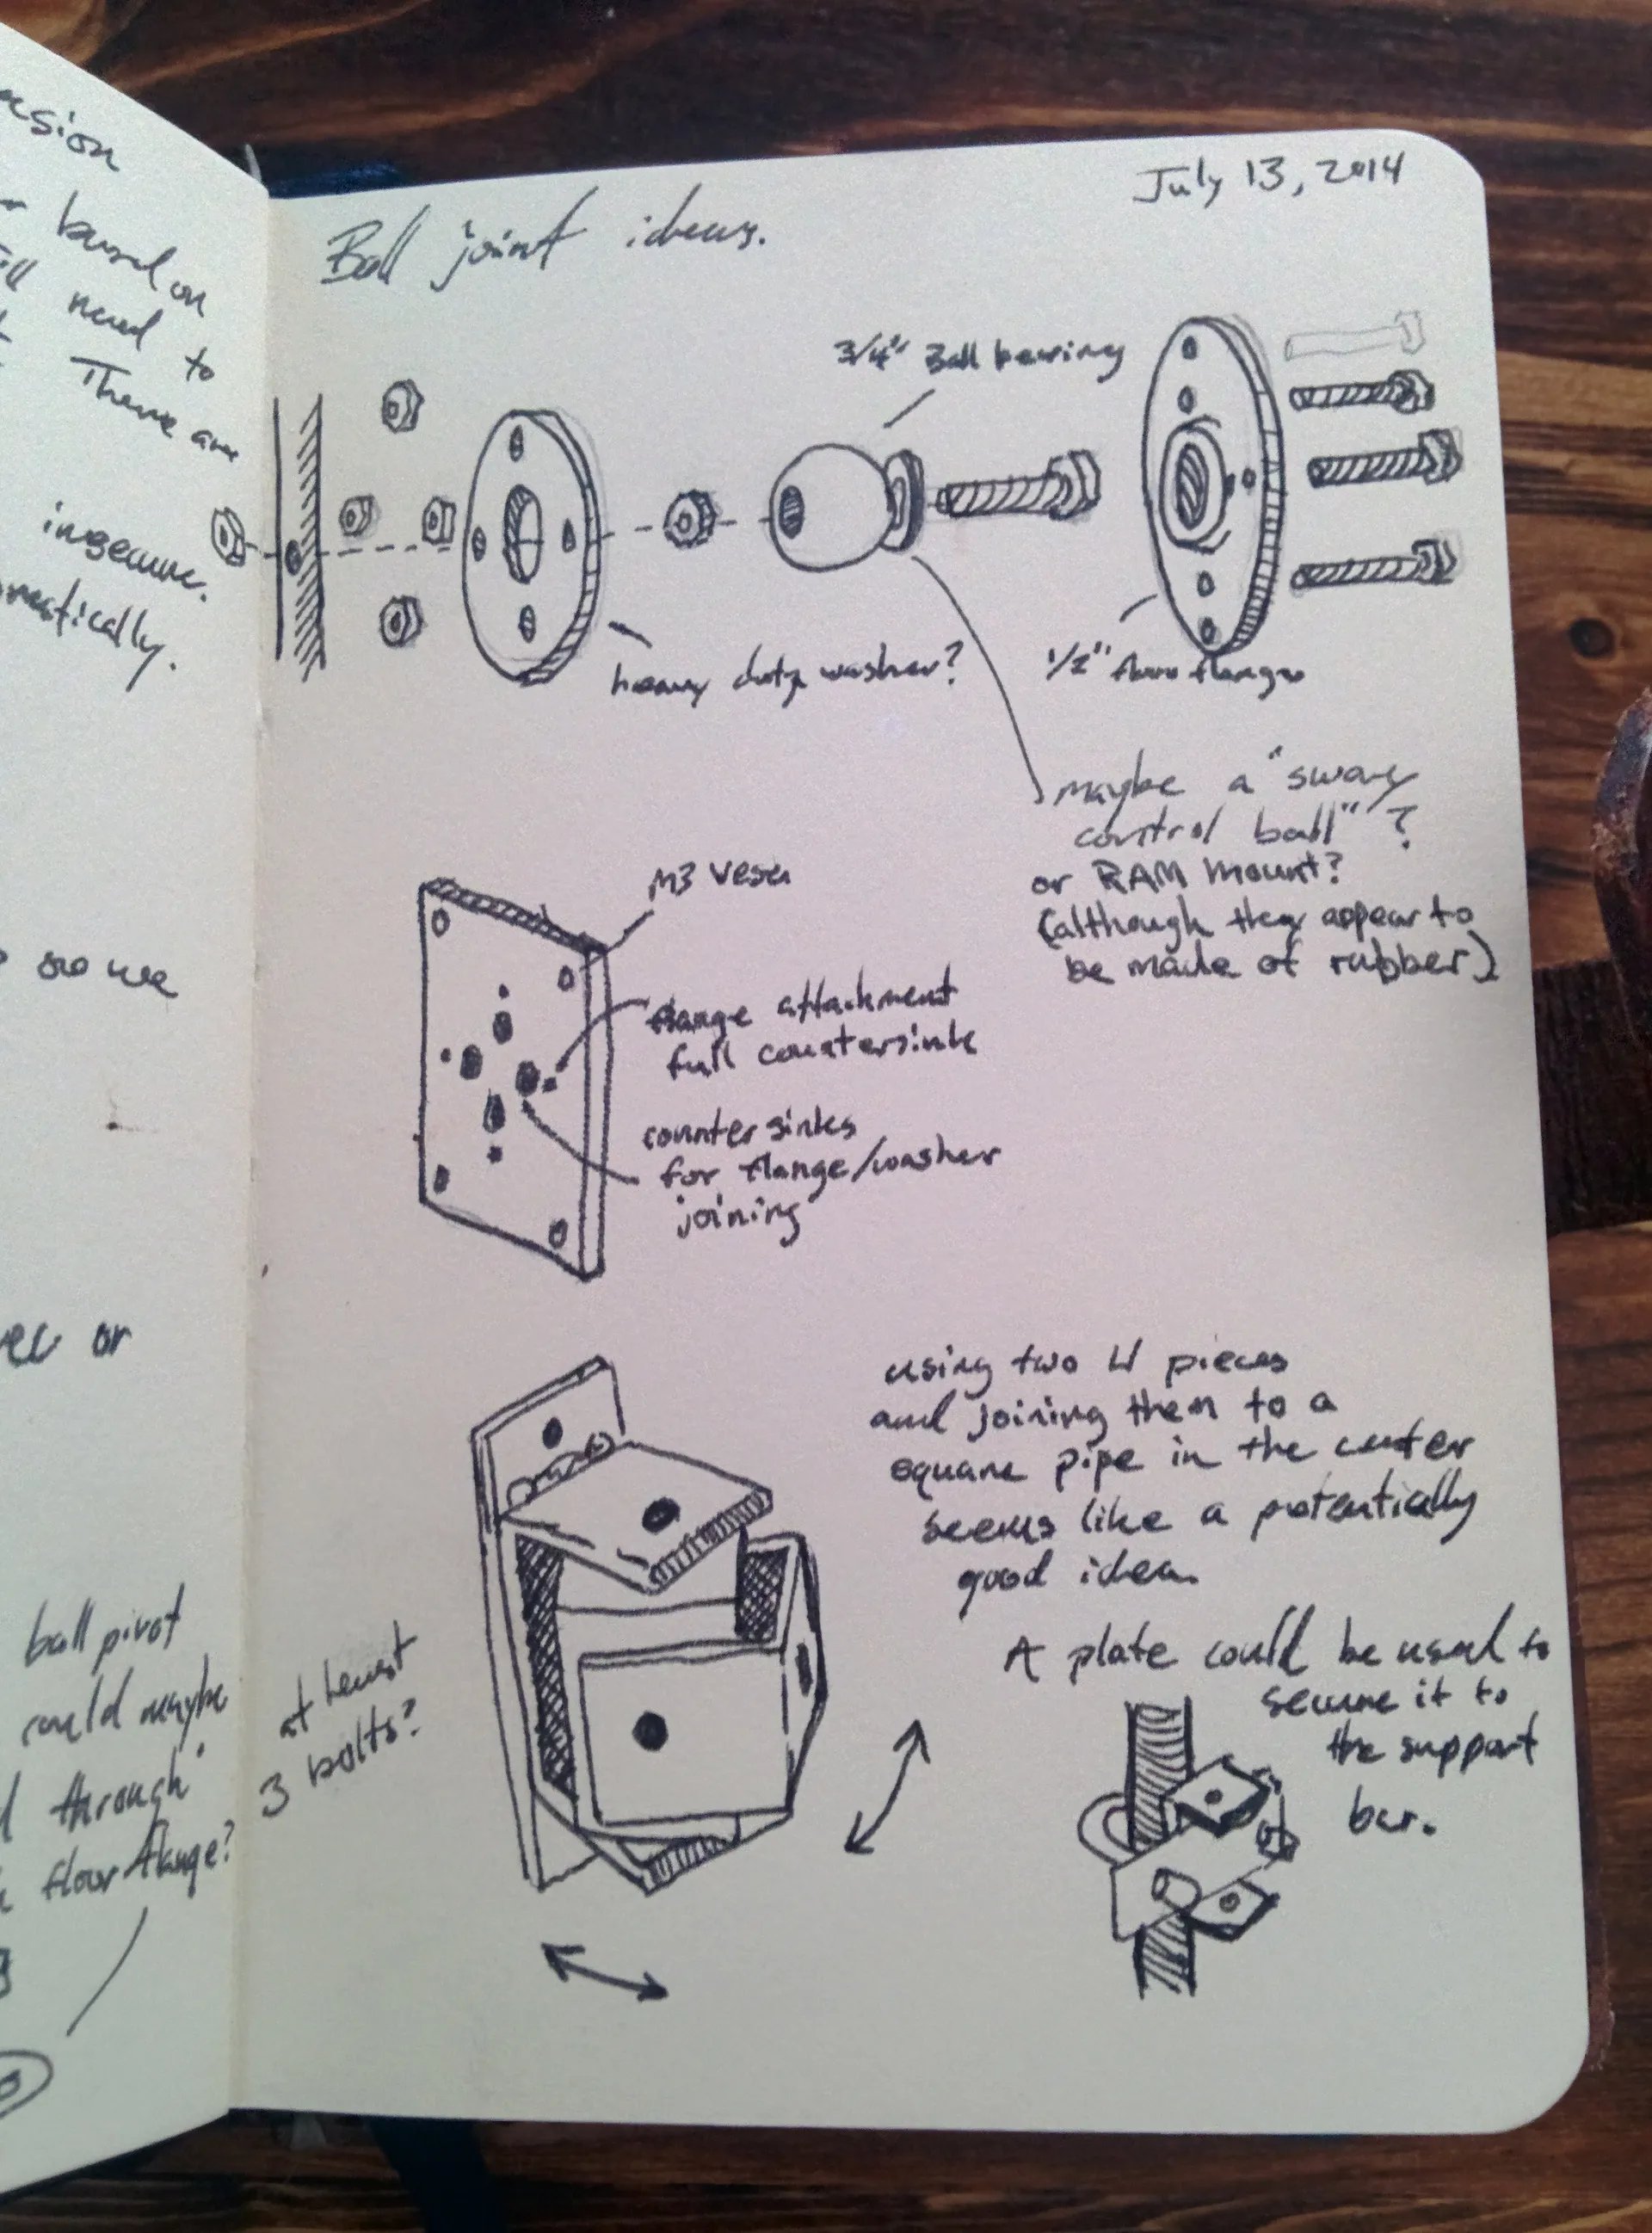 July 13, 2014
Ball joint ideas.
3/4" Ball bearing
heavy duty washer?
1/2" floor flange
maybe a "sway
control ball"?
or RAM mount?
(although they appear to
be made of rubber)
M3 Vesa
flange attachment
full countersink
counter sinks
for flange/washer
joining
using two U pieces
and joining them to a
square pipe in the center
seems like a potentially
good idea.
A plate could be used to
secure it to
the support
bar.
at least
3 bolts?
based on
need to
There are
insecure.
or
ball pivot
could maybe
through"
floor flange?